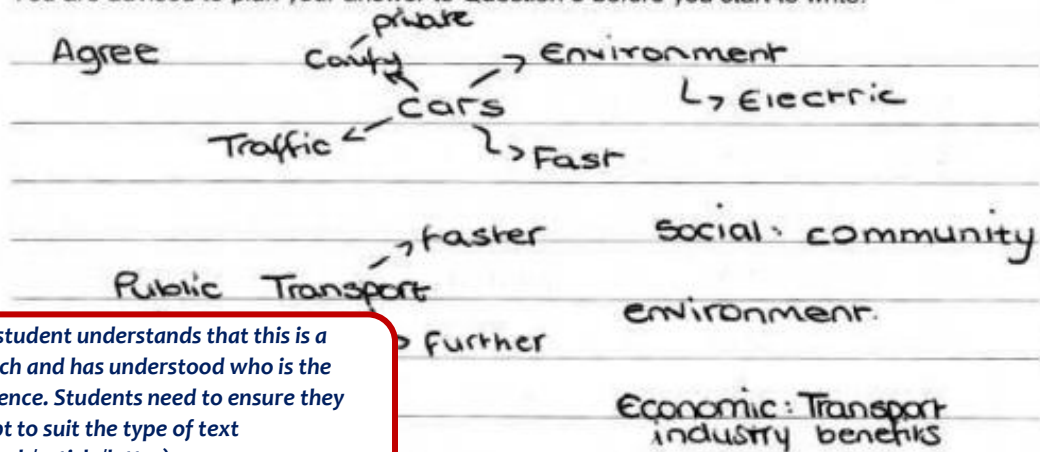 private
Agree
Comfy
Environment
Cars
Electric
Traffic
Fast
faster
Social: community
Public Transport
environment.
further
student understands that this is a
ch and has understood who is the
ence. Students need to ensure they
pt to suit the type of text
Economic: Transport
industry benefits